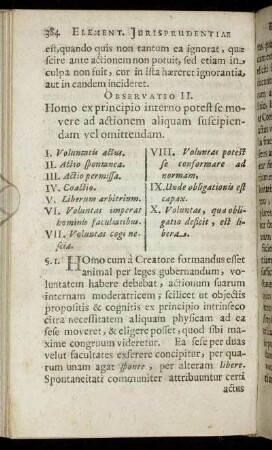 384 ELEMENT. JURISPRUDENTIAE
est, quando quis non tantum ea ignorat, quæ
scire ante actionem non potuit, sed etiam in
culpa non fuit, cur in ista hæreret ignorantia,
aut in eandem incideret.
OBSERVATIO II.
Homo ex principio interno potest se mo-
vere ad actionem aliquam suscipien-
dam vel omittendam.
I. Voluntatis actus.
II. Actio spontanea.
III. Actio permissa.
IV. Coactio.
V. Liberum arbitrium.
VI. Voluntas imperat
hominis facultatibus.
VII. Voluntas cogi ne-
scia.
VIII. Voluntas potest
se conformare ad
normam,
IX. Unde obligationis est
capax.
X. Voluntas, qua obli-
gatio deficit, est li-
bera.
§. 1. HOmo cum à Creatore formandus esset
animal per leges gubernandum, vo-
luntatem habere debebat, actionum suarum
internam moderatricem; scilicet ut objectis
propositis & cognitis ex principio intrinseco
citra necessitatem aliquam physicam ad ea
sese moveret, & eligere posset, quod sibi ma-
xime congruum videretur. Ea sese per duas
velut facultates exserere concipitur, per qua-
rum unam agat sponte, per alteram libere.
Spontaneitati communiter attribuuntur certi
actus